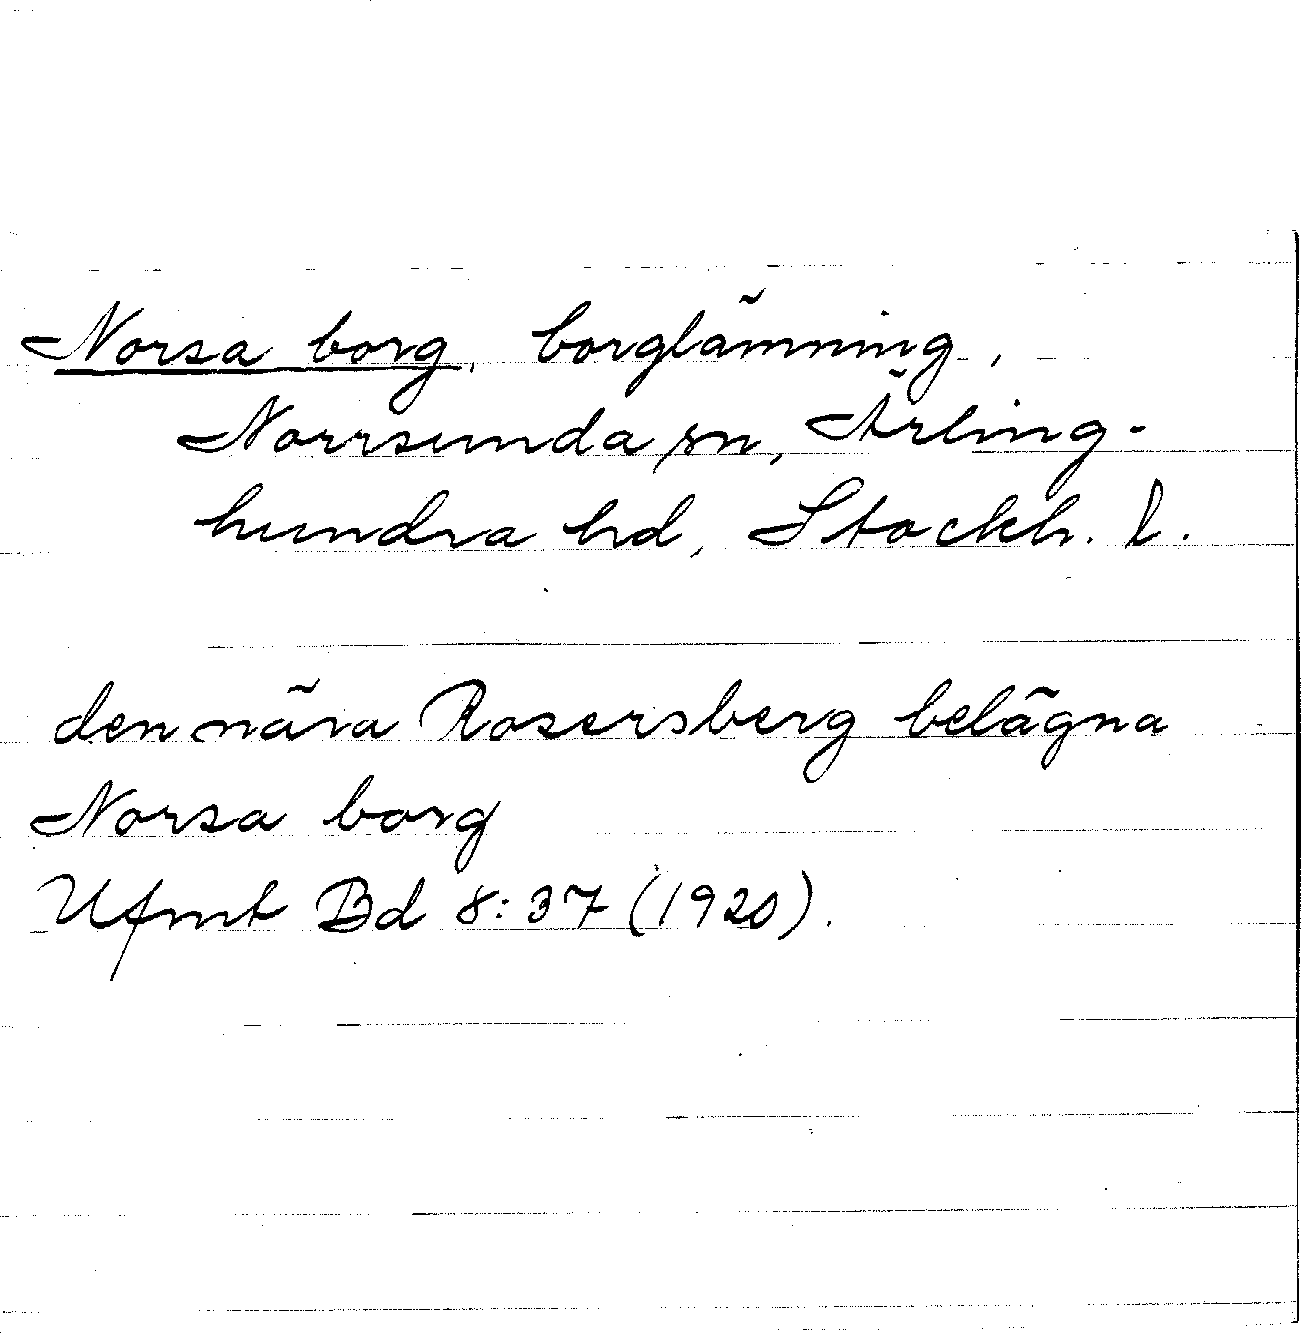 Norsa borg, borglämning,
Norrsunda sn, Ärling-
hundra hd, Stockh. l.
den nära Rosersberg belägna
Norsa borg
Ufmt Bd 8:37 (1920).